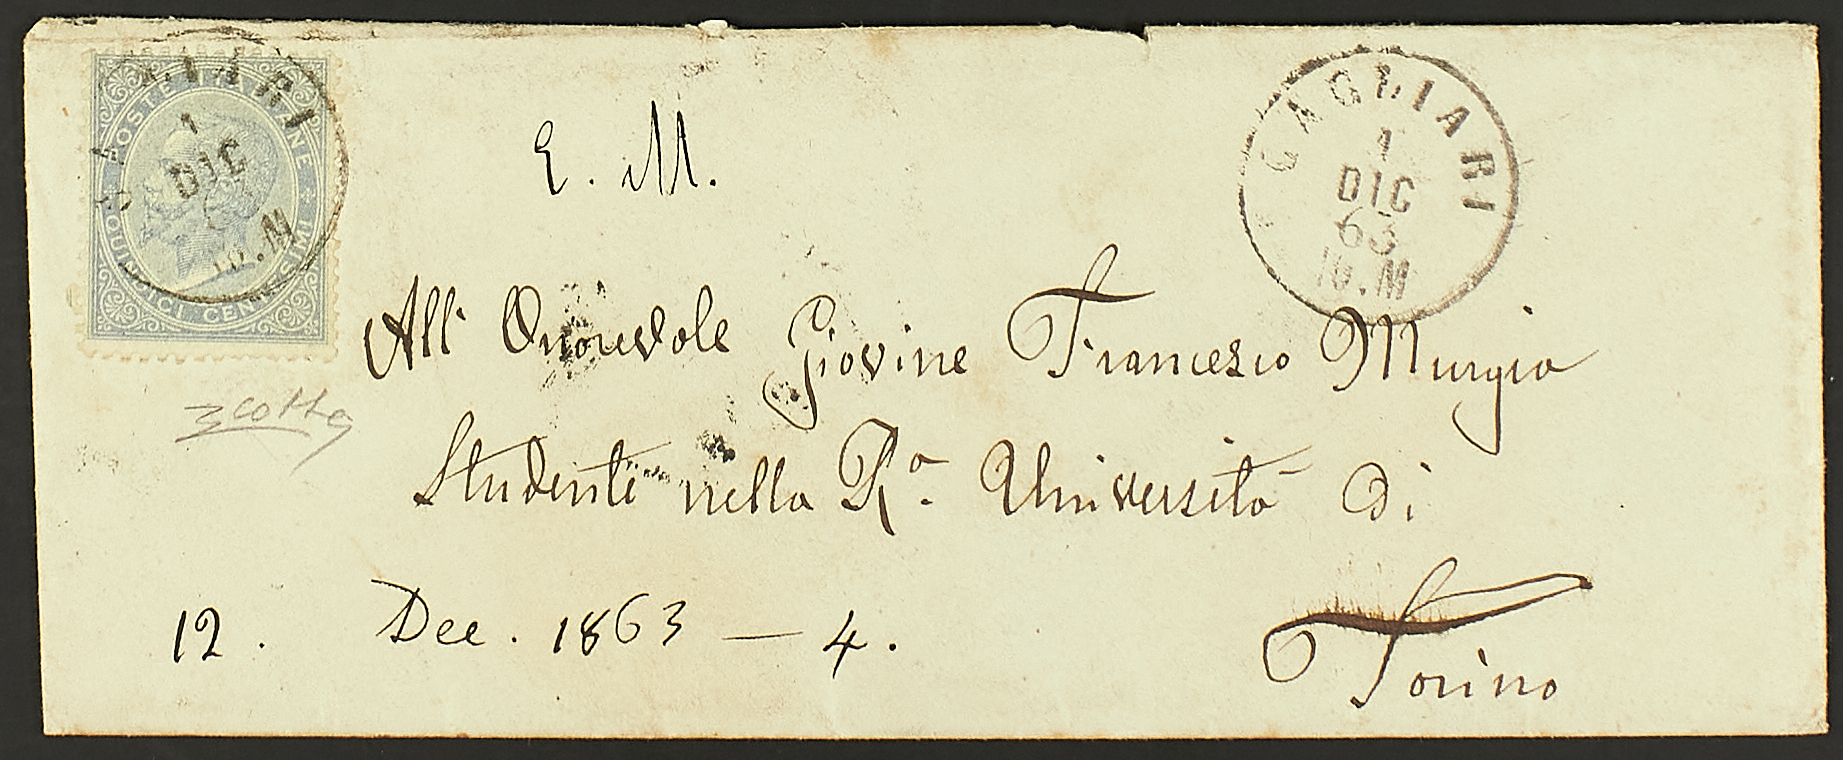 POSTE ITALIANE
QUINDICI CENTESIMI
CAGLIARI
1
DIC
63
10.M
E. M.
CAGLIARI
1
DIC
63
10.M
All' Onorevole Giovine Francesco Murgia
Studente nella R.a Università di
Torino
12. Dec. 1863 — 4.